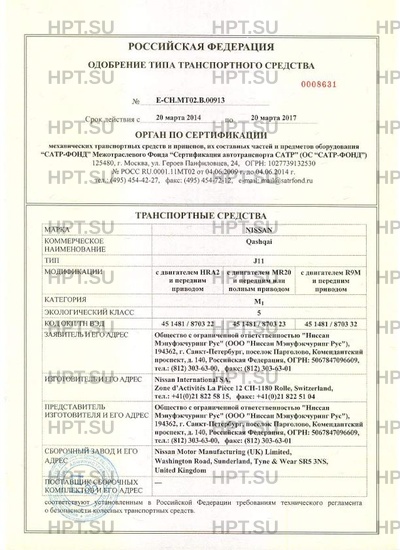 РОССИЙСКАЯ ФЕДЕРАЦИЯ
ОДОБРЕНИЕ ТИПА ТРАНСПОРТНОГО СРЕДСТВА
0008631
№ E-CH.MT02.B.00913
Срок действия с 20 марта 2014 по 20 марта 2017
ОРГАН ПО СЕРТИФИКАЦИИ
механических транспортных средств и прицепов, их составных частей и предметов оборудования
“САТР-ФОНД” Межотраслевого Фонда “Сертификация автотранспорта САТР” (ОС “САТР-ФОНД”)
125480, г. Москва, ул. Героев Панфиловцев, 24, ОГРН: 1027739132530
№ РОСС RU.0001.11МТ02 от 04.06.2009 г. по 04.06.2014 г.
тел.: (495) 454-42-27, факс: (495) 454-72-12, e-mail: mail@satrfond.ru
ТРАНСПОРТНЫЕ СРЕДСТВА
МАРКА NISSAN
КОММЕРЧЕСКОЕ НАИМЕНОВАНИЕ Qashqai
ТИП J11
МОДИФИКАЦИИ с двигателем HRA2 с двигателем MR20 с двигателем R9M
и передним и передним или и передним
приводом полным приводом приводом
КАТЕГОРИЯ M1
ЭКОЛОГИЧЕСКИЙ КЛАСС 5
КОД ОКП/ТН ВЭД 45 1481 / 8703 22 45 1481 / 8703 23 45 1481 / 8703 32
ЗАЯВИТЕЛЬ И ЕГО АДРЕС Общество с ограниченной ответственностью "Ниссан
Мэнуфэкчуринг Рус" (ООО "Ниссан Мэнуфэкчуринг Рус"),
194362, г. Санкт-Петербург, поселок Парголово, Комендантский
проспект, д. 140, Российская Федерация, ОГРН: 5067847096609,
тел.: (812) 303-63-00, факс: (812) 303-63-01
ИЗГОТОВИТЕЛЬ И ЕГО АДРЕС Nissan International SA,
Zone d'Activités La Pièce 12 CH-1180 Rolle, Switzerland,
тел.: +41(0)21 822 58 15, факс: +41(0)21 822 51 04
ПРЕДСТАВИТЕЛЬ Общество с ограниченной ответственностью "Ниссан
ИЗГОТОВИТЕЛЯ И ЕГО АДРЕС Мэнуфэкчуринг Рус" (ООО "Ниссан Мэнуфэкчуринг Рус"),
194362, г. Санкт-Петербург, поселок Парголово, Комендантский
проспект, д. 140, Российская Федерация, ОГРН: 5067847096609,
тел.: (812) 303-63-00, факс: (812) 303-63-01
СБОРОЧНЫЙ ЗАВОД И ЕГО АДРЕС Nissan Motor Manufacturing (UK) Limited,
Washington Road, Sunderland, Tyne & Wear SR5 3NS,
United Kingdom
ПОСТАВЩИК СБОРОЧНЫХ —
КОМПЛЕКТОВ И ЕГО АДРЕС
соответствуют установленным в Российской Федерации требованиям технического регламента
о безопасности колесных транспортных средств.
HPT.SU